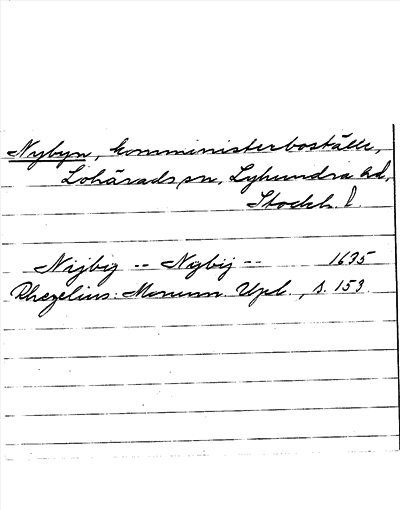 Nybyn, komministerboställe,
Lohärads sn, Lyhundra hd,
Stockh. l.
Nijbig -- Nybij -- 1635
Rhezelius: Monum. Upl., s. 153